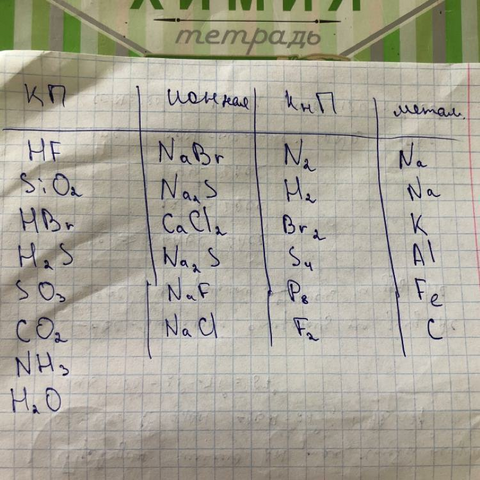 ХИМИЯ
тетрадь
КП ионная КнП метал.
HF NaBr N₂ Na
SiO₂ Na₂S H₂ Na
HBr CaCl₂ Br₂ K
H₂S Na₂S S₄ Al
SO₃ NaF P₈ Fe
CO₂ NaCl F₂ C
NH₃
H₂O